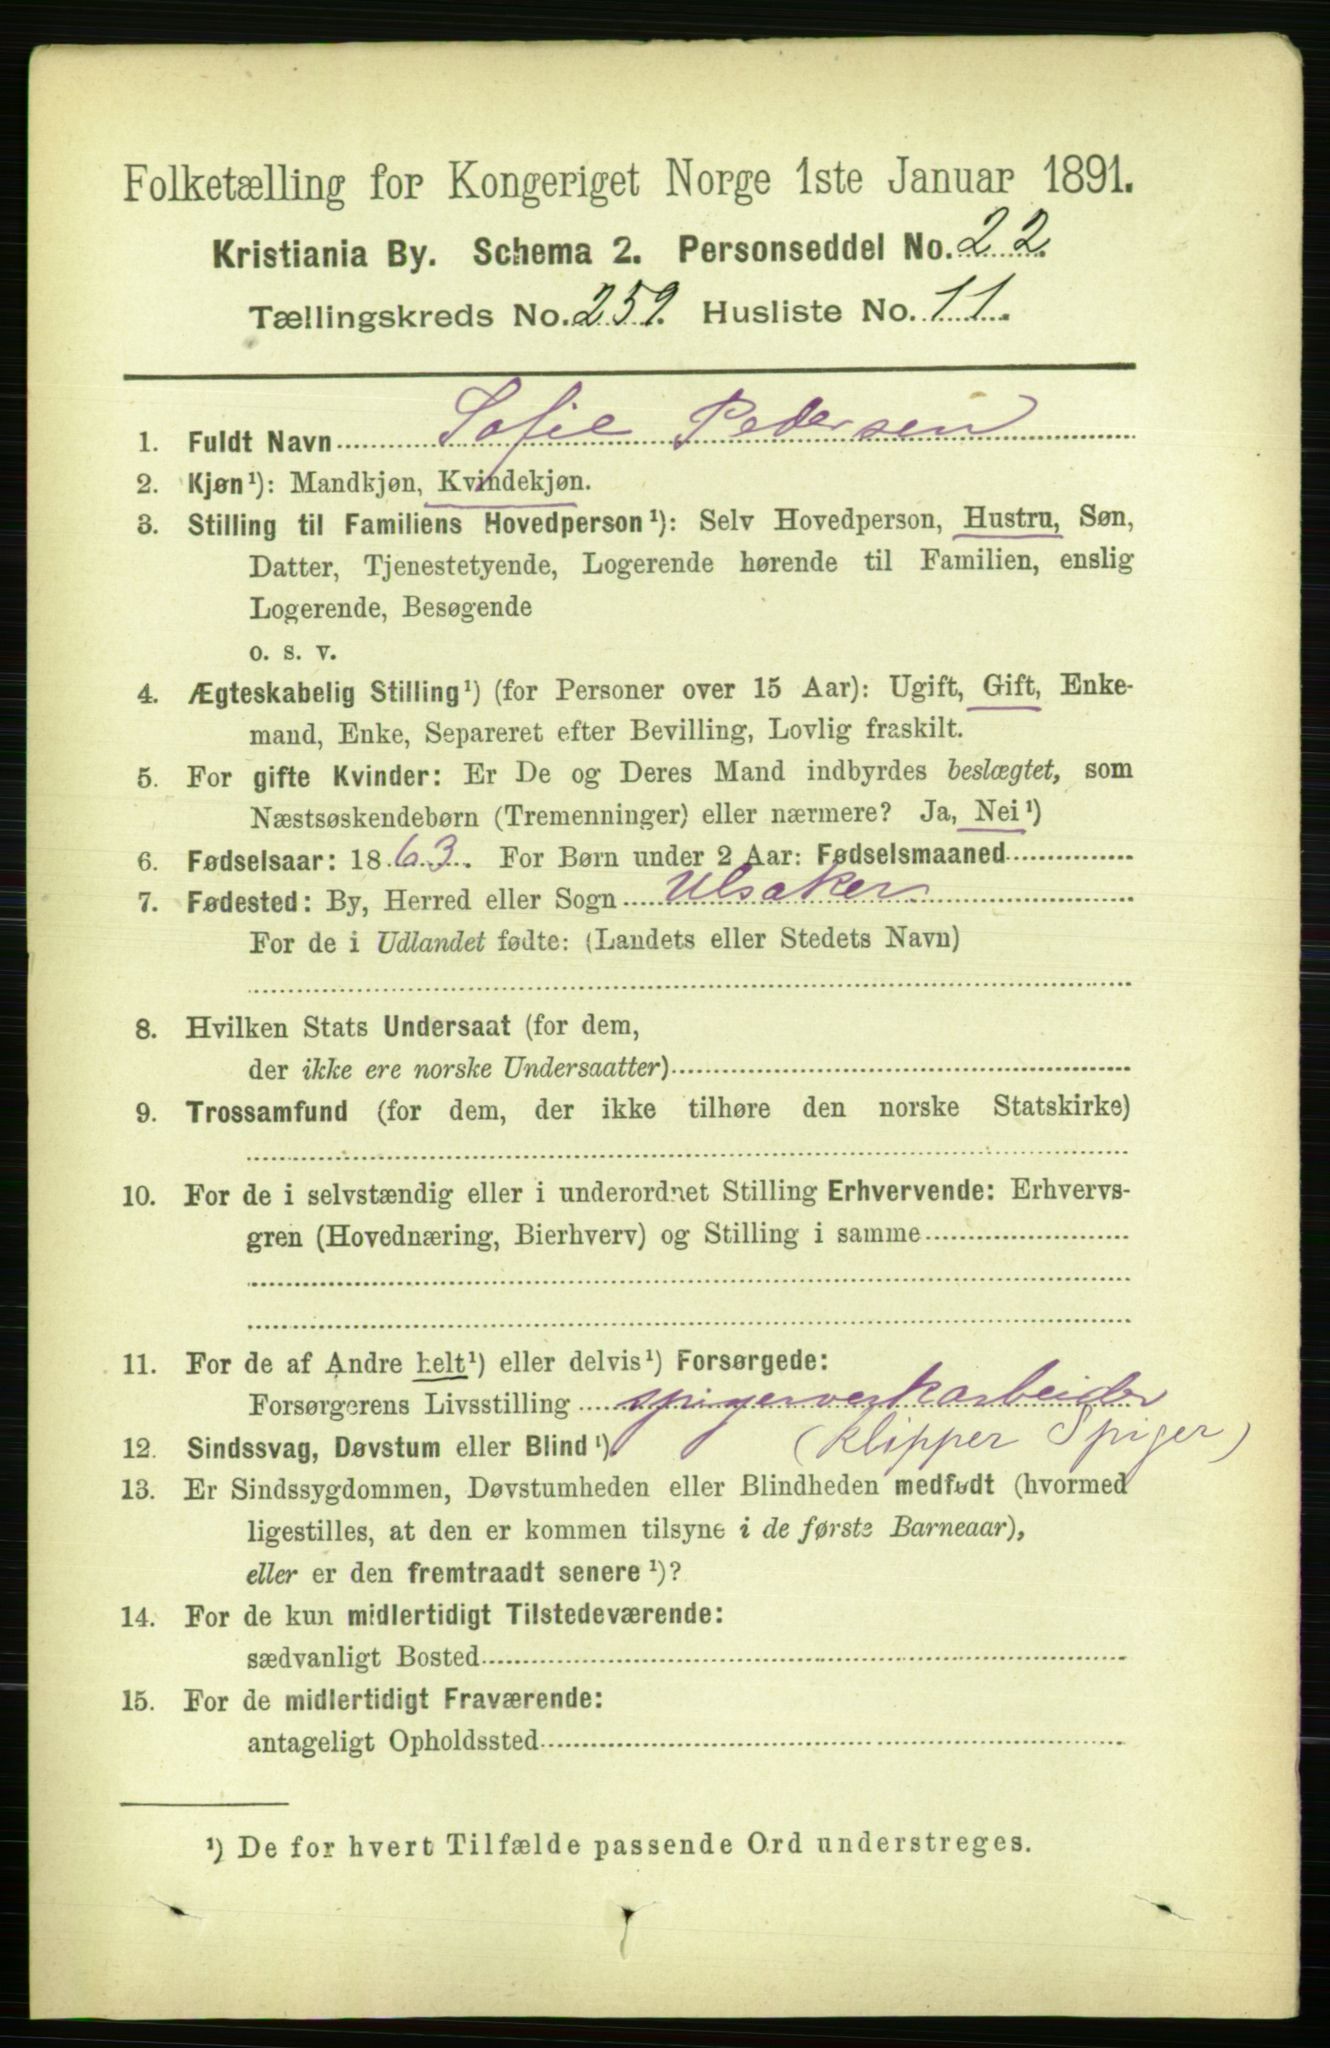 Folketælling for Kongeriget Norge 1ste Januar 1891.
Kristiania By. Schema 2. Personseddel No. 22.
Tællingskreds No. 259. Husliste No. 11.
1. Fuldt Navn Sofie Pedersen
2. Kjøn¹): Mandkjøn, Kvindekjøn.
3. Stilling til Familiens Hovedperson¹): Selv Hovedperson, Hustru, Søn,
Datter, Tjenestetyende, Logerende hørende til Familien, enslig
Logerende, Besøgende
o. s. v.
4. Ægteskabelig Stilling¹) (for Personer over 15 Aar): Ugift, Gift, Enke-
mand, Enke, Separeret efter Bevilling, Lovlig fraskilt.
5. For gifte Kvinder: Er De og Deres Mand indbyrdes beslægtet, som
Næstsøskendebørn (Tremenninger) eller nærmere? Ja, Nei¹)
6. Fødselsaar: 1863. For Børn under 2 Aar: Fødselsmaaned
7. Fødested: By, Herred eller Sogn Ulsaker
For de i Udlandet fødte: (Landets eller Stedets Navn)
8. Hvilken Stats Undersaat (for dem,
der ikke ere norske Undersaatter)
9. Trossamfund (for dem, der ikke tilhøre den norske Statskirke)
10. For de i selvstændig eller i underordnet Stilling Erhvervende: Erhvervs-
gren (Hovednæring, Bierhverv) og Stilling i samme
11. For de af Andre helt¹) eller delvis¹) Forsørgede:
Forsørgerens Livsstilling spigerverkarbeider
(klipper Spiger)
12. Sindssvag, Døvstum eller Blind¹).
13. Er Sindssygdommen, Døvstumheden eller Blindheden medfødt (hvormed
ligestilles, at den er kommen tilsyne i de første Barneaar),
eller er den fremtraadt senere¹)?
14. For de kun midlertidigt Tilstedeværende:
sædvanligt Bosted
15. For de midlertidigt Fraværende:
antageligt Opholdssted
¹) De for hvert Tilfælde passende Ord understreges.